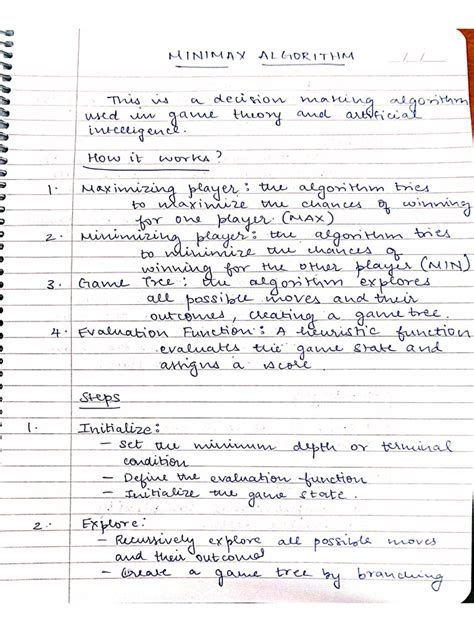 MINIMAX ALGORITHM
This is a decision making algorithm
used in game theory and artificial
intelligence.
How it works?
1. Maximizing player: the algorithm tries
to maximize the chances of winning
for one player (MAX)
2. Minimizing player: the algorithm tries
to minimize the chances of
winning for the other player (MIN)
3. Game Tree: the algorithm explores
all possible moves and their
outcomes, creating a game tree.
4. Evaluation Function: A heuristic function
evaluates the game state and
assigns a score.
Steps
1. Initialize:
- Set the minimum depth or terminal
condition
- Define the evaluation function
- Initialize the game state.
2. Explore:
- Recursively explore all possible moves
and their outcomes
- Create a game tree by branching